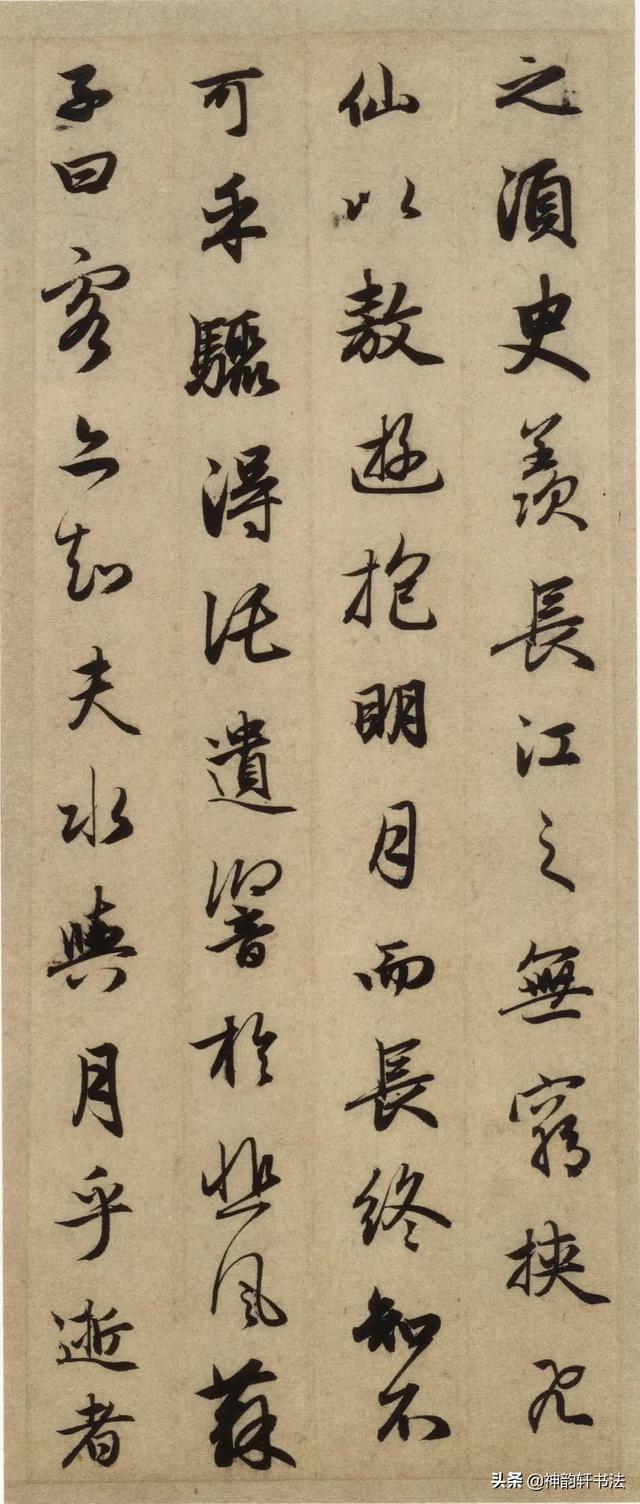 之須臾羨長江之無窮挾飛
仙以敖遊抱明月而長終知不
可乎驟得託遺響於悲風蘇
子曰客亦知夫水與月乎逝者
头条 @神韵轩书法